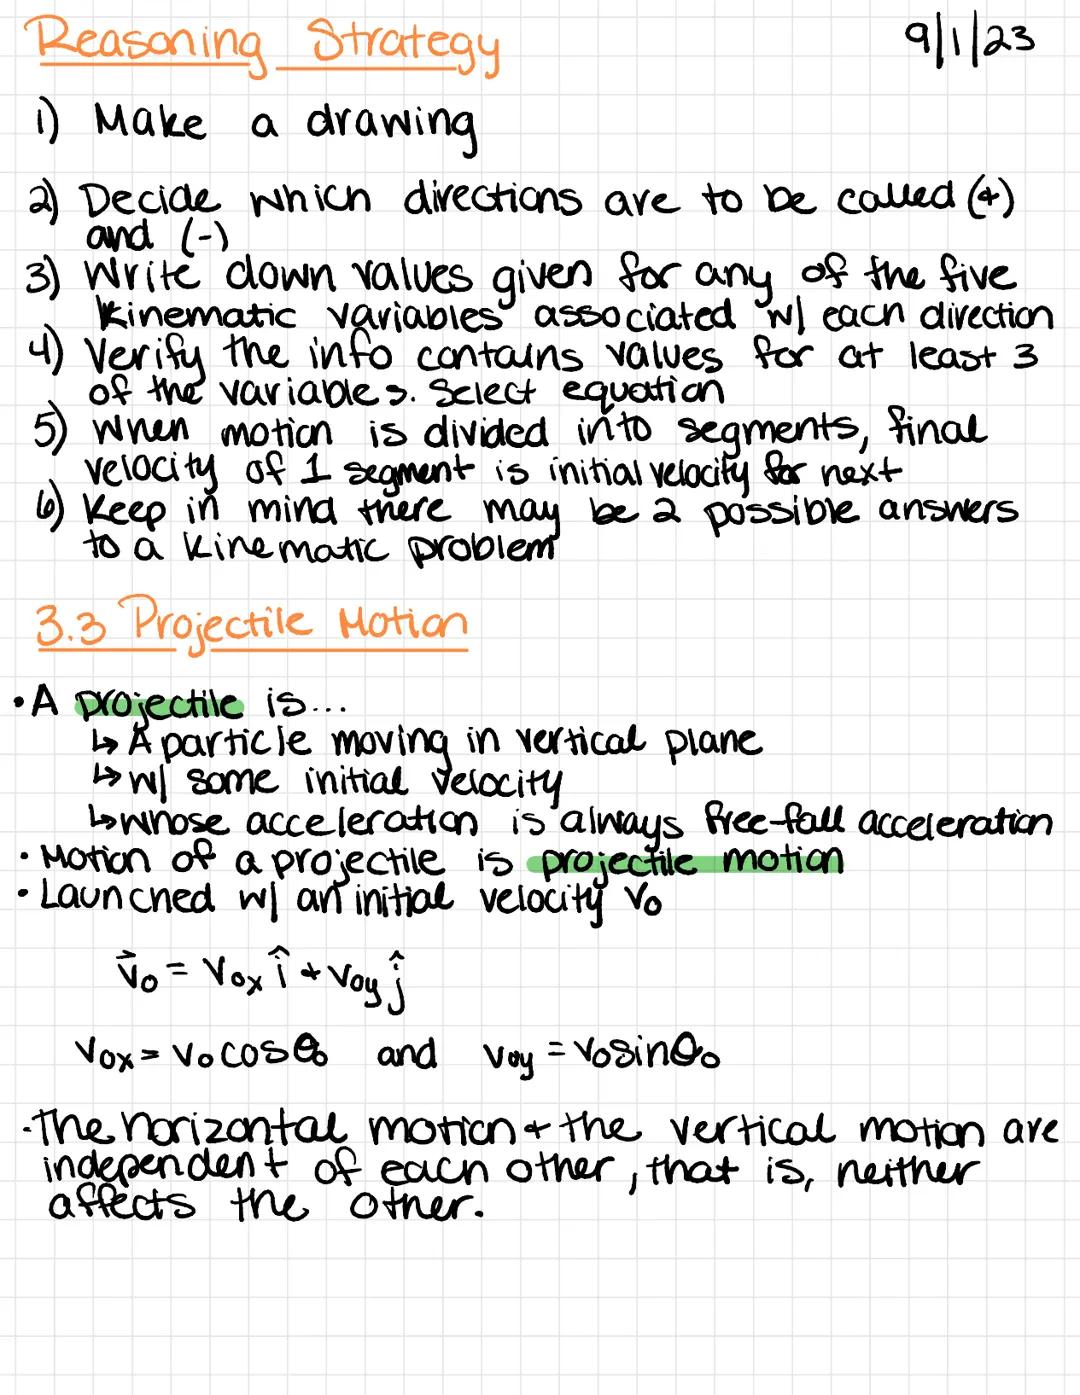 Reasoning Strategy
9/1/23
1) Make a drawing
2) Decide which directions are to be called (+)
and (-)
3) Write down values given for any of the five
kinematic variables associated w/ each direction
4) Verify the info contains values for at least 3
of the variables. Select equation
5) When motion is divided into segments, final
velocity of 1 segment is initial velocity for next
6) Keep in mind there may be 2 possible answers
to a kinematic problem
3.3 Projectile Motion
• A projectile is...
↳ A particle moving in vertical plane
↳ w/ some initial velocity
↳ whose acceleration is always free-fall acceleration
• Motion of a projectile is projectile motion
• Launched w/ an initial velocity v₀
v⃗₀ = v₀ₓ î + v₀y ĵ
v₀ₓ = v₀cosθ₀ and v₀y = v₀sinθ₀
• The horizontal motion + the vertical motion are
independent of each other, that is, neither
affects the other.